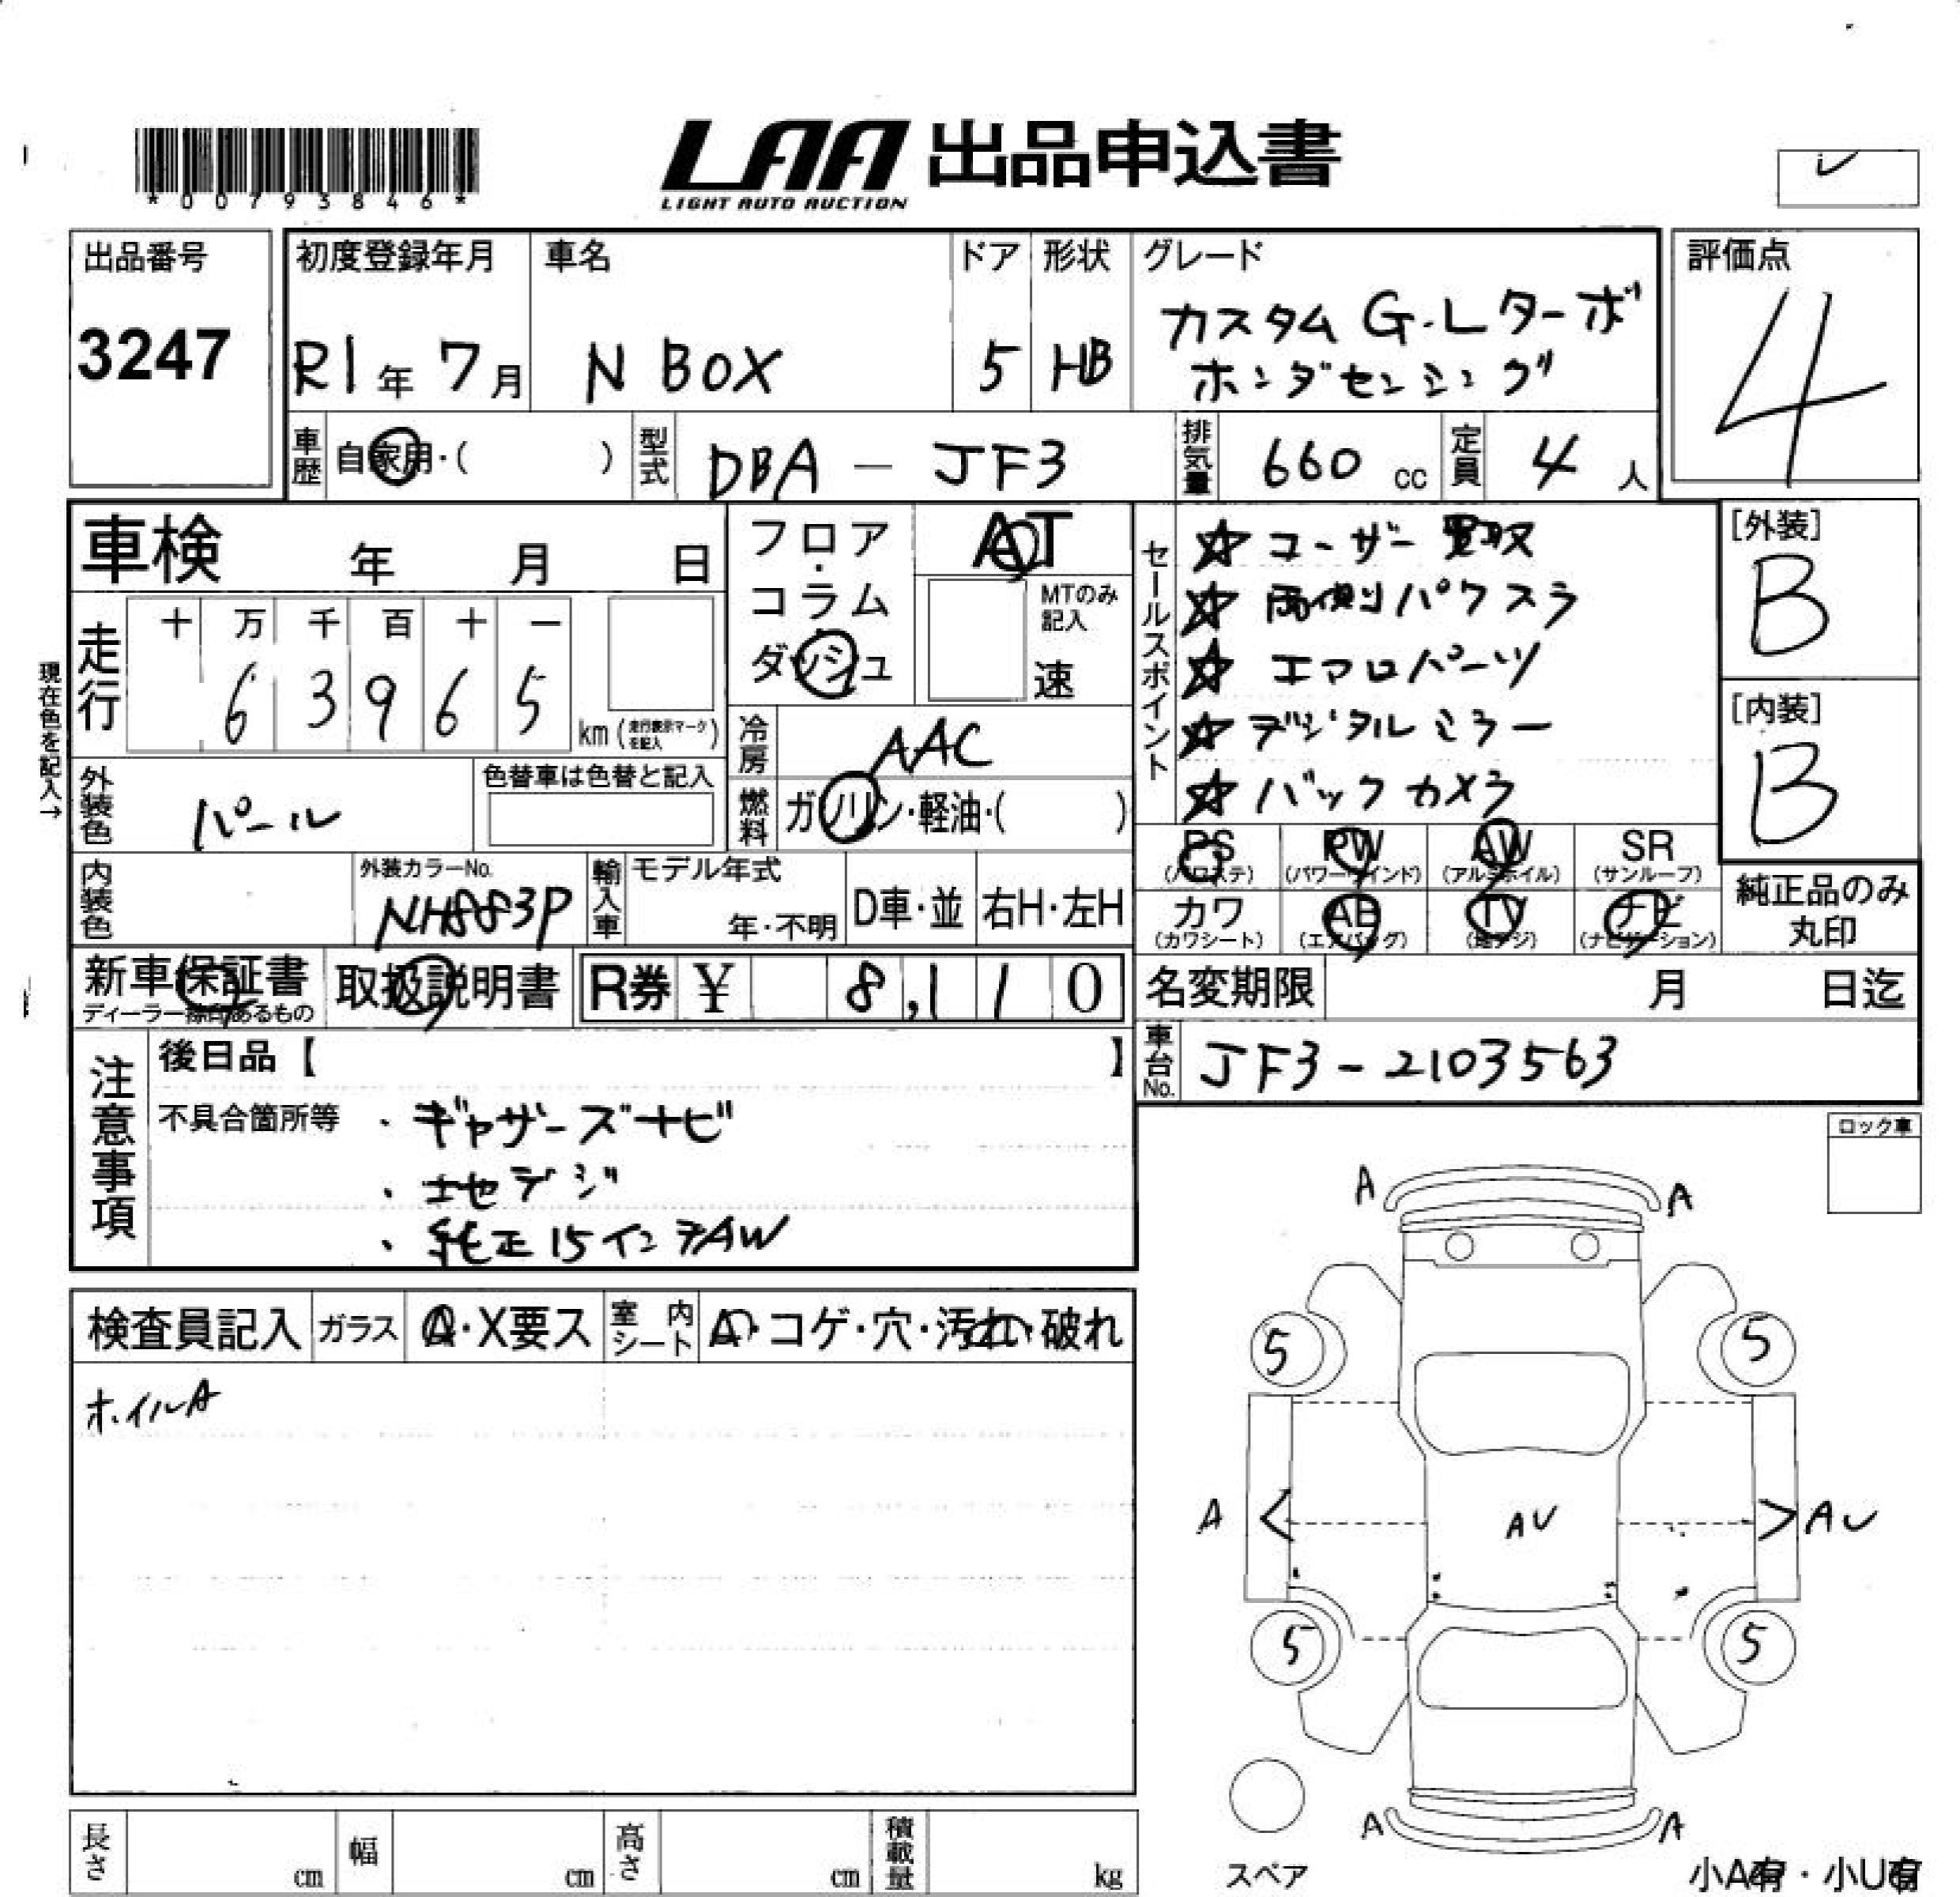 *00793846*
LAA 出品申込書
LIGHT AUTO AUCTION
レ
出品番号
3247
初度登録年月
R1年 7月
車名
N BOX
ドア
5
形状
HB
グレード
カスタム G・Lターボ
ホンダセンシング
評価点
4
車歴
自家用・( )
型式
DBA － JF3
排気量
660 cc
定員
4 人
車検 年 月 日
走行
十 万 千 百 十 一
6 3 9 6 5
km (走行表示マークを記入)
現在色を記入→
外装色
パール
色替車は色替と記入
内装色
外装カラーNo.
NH883P
フロア・
コラム・
ダッシュ
AT
MTのみ
記入
速
冷房
AAC
燃料
ガソリン・軽油・( )
輸入車
モデル年式
年・不明
D車・並
右H・左H
セールスポイント
☆ユーザー買取
☆両側パワスラ
☆エアロパーツ
☆デジタルミラー
☆バックカメラ
[外装]
B
[内装]
B
PS
(パワステ)
PW
(パワーウインド)
AW
(アルミホイル)
SR
(サンルーフ)
カワ
(カワシート)
AB
(エアバッグ)
TV
(地デジ)
ナビ
(ナビゲーション)
純正品のみ
丸印
新車保証書
ディーラー捺印あるもの
取扱説明書
R券 ¥ 8,110
名変期限 月 日迄
車台No.
JF3-2103563
注意事項
後日品【 】
不具合箇所等
・ギャザーズナビ
・地デジ
・純正15インチAW
ロック車
検査員記入
ガラス
A・X要ス
室内シート
A・コゲ・穴・汚れ・破れ
ホイルA
A A
5 5
A AU AU
5 5
A A
スペア
小A有・小U有
長さ cm
幅 cm
高さ cm
積載量 kg